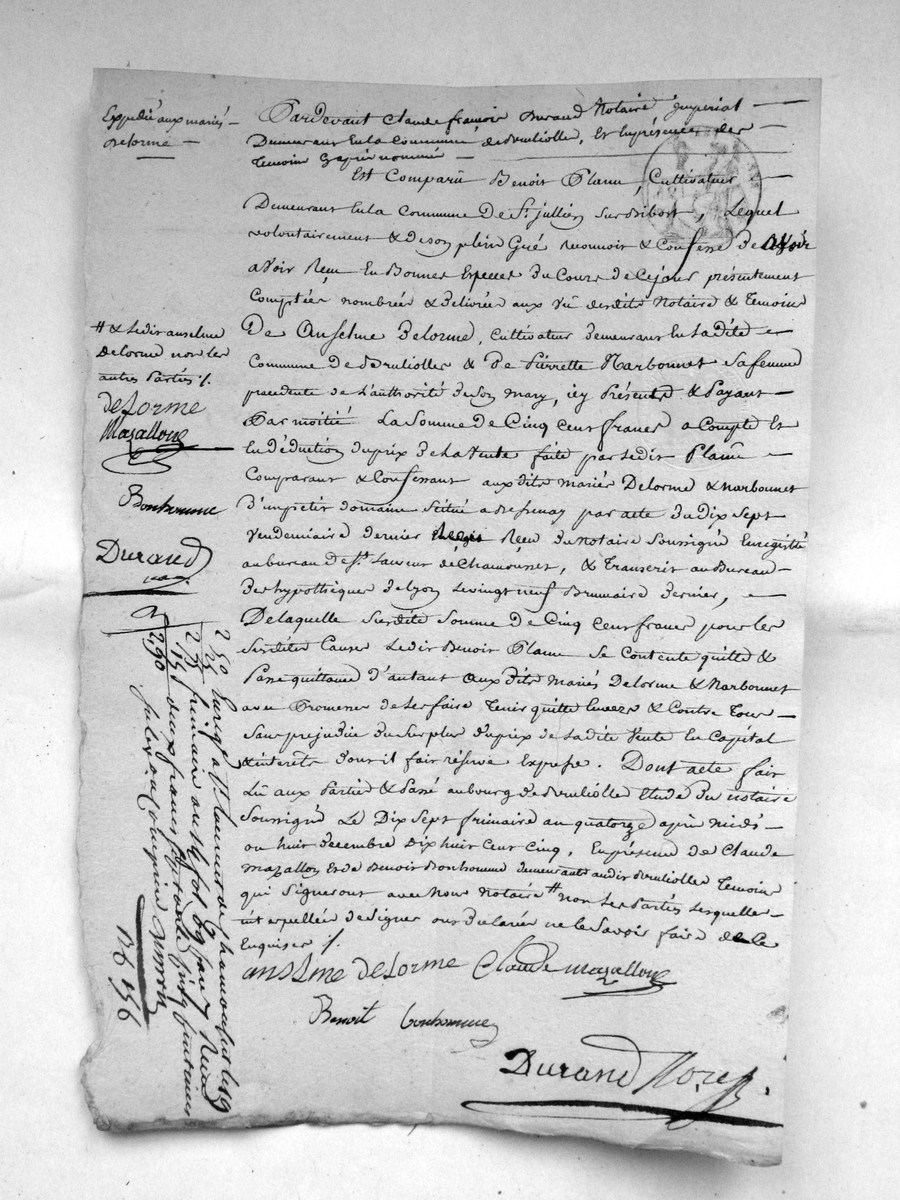 Expédié aux mariés
delorme
Pardevant Claude françois Durand Notaire Imperial
Demeurant En la Commune de Brulliolle, Et En présence des
temoins cy après nommés
Est Comparû Benoit Plame, Cultivateur
Demeurant En la Commune De St. jullien Sur Bibost, Lequel
volontairement & de son plein Gré reconnoit & Confesse De
avoir Reçu En Bonnes Especes Du Cours de Ce jour présentement
Comptées, nombrées & délivrées aux vû desdits Notaire & temoins
De Anselme Delorme, Cultivateur demeurant En Ladite
Commune De Brulliolles & De Pierrette Narbonnet Sa femme
procedente de L'authorité de Son mary, icy Présents & Payant
Par moitié La Somme de Cinq Cent francs a Compte Et
En déduction du prix de La Vente faite par Ledit Plame
Comparant & Confessant aux dits mariés Delorme & Narbonnet
D'un petit domaine Scitué a par acte du dix Sept
Vendemiaire dernier Reçu du Notaire Soussigné Enregistré
au bureau de St. Laurent de Chamousset, & Transcrit au Bureau
Des hypothèques De Lyon Le vingt neuf Brumaire dernier,
De laquelle Susdite Somme de Cinq Cent francs pour les
Susdites Causes Ledit Benoit Plame Se Contente quitte &
Passe quittance d'autant aux dits mariés Delorme & Narbonnet
avec Promesse de Les faire Tenir quitte Envers & Contre Tous
Sans préjudice du Surplus du prix de La dite Vente En Capital
& interets dont il fait réserve Expresse. Dont acte fait
Lû aux Parties & Passé au bourg de Brulliolle Etude du notaire
Soussigné Le Dix Sept frimaire an quatorze après midi
ou huit decembre dix huit Cent Cinq, En présence de Claude
Mazallon Et de Benoit Bonhomme demeurants audit Brulliolles Temoins
qui Signeront avec Nous Notaire # non Les Parties Lesquelles
interpellées de Signer ont Declarées ne le Savoir faire de Ce
Enquises /.
# & Ledit anselme
Delorme non les
autres Parties /.
delorme
Mazallon
Bonhomme
Durand
anselme delorme Claude Mazallon
Benoit bonhomme
Durand Nore
2 50 Enregt. a St. Laurent de chamousset le 19
25 frimaire an 14 fol. Reçu
2 75 deux francs soixante quinze centimes
15
2 90